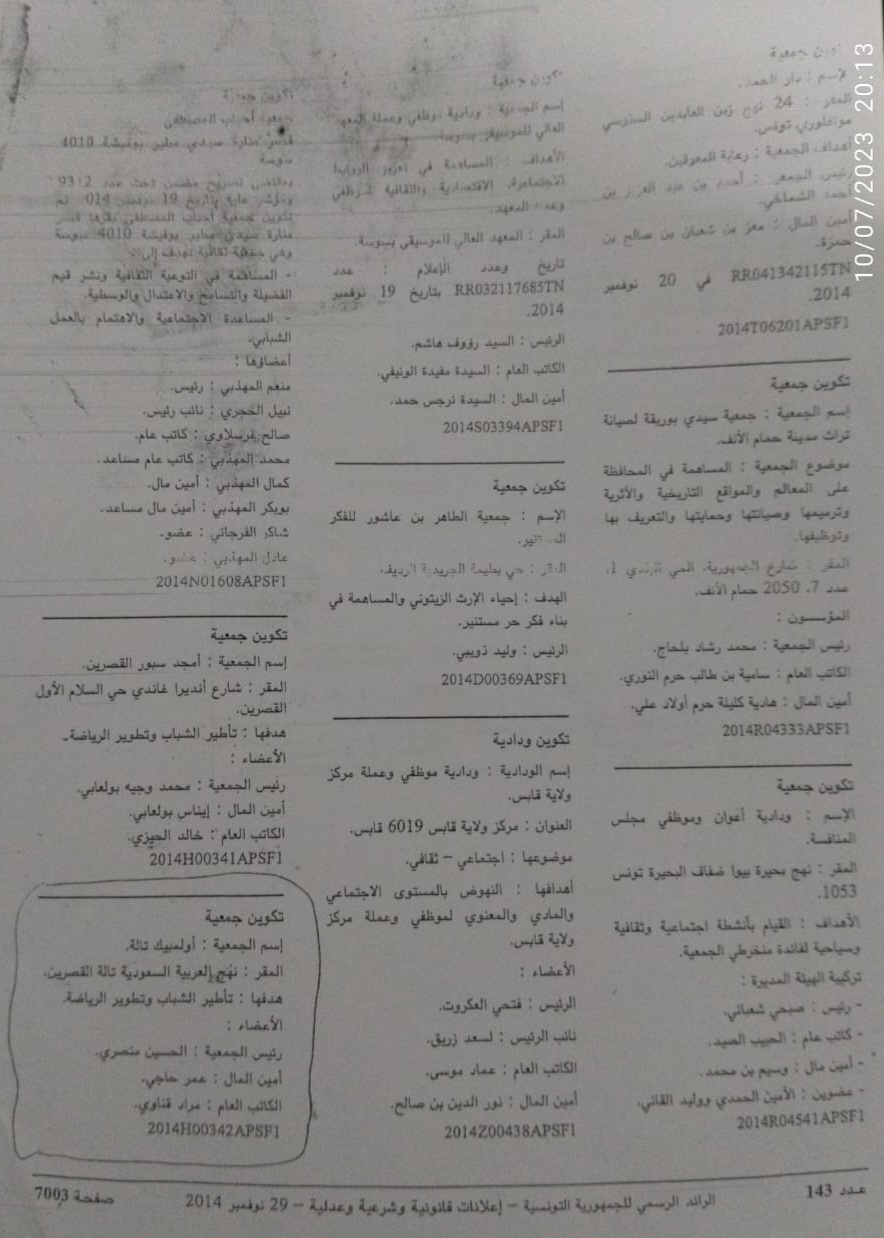 تكوين جمعية
الإسم : دار الحمد.
المقر : 24 نهج زين العابدين السنوسي
مونفلوري تونس.
أهداف الجمعية : رعاية المعوقين.
رئيس الجمعية : أحمد بن عبد العزيز بن
أحمد الشماخي.
أمين المال : معز بن شعبان بن صالح بن
حمزة.
RR041342115TN في 20 نوفمبر
2014.
2014T06201APSF1
تكوين جمعية
إسم الجمعية : جمعية سيدي بوريقة لصيانة
تراث مدينة حمام الأنف.
موضوع الجمعية : المساهمة في المحافظة
على المعالم والمواقع التاريخية والأثرية
وترميمها وصيانتها وحمايتها والتعريف بها
وتوظيفها.
المقر : شارع الجمهورية، الحي البلدي 1،
عدد 7، 2050 حمام الأنف.
المؤسسون :
رئيس الجمعية : محمد رشاد بلحاج.
الكاتب العام : سامية بن طالب حرم النوري.
أمين المال : هادية كليلة حرم أولاد علي.
2014R04333APSF1
تكوين جمعية
الإسم : ودادية أعوان وموظفي مجلس
المنافسة.
المقر : نهج بحيرة بيوا ضفاف البحيرة تونس
1053.
الأهداف : القيام بأنشطة اجتماعية وثقافية
وسياحية لفائدة منخرطي الجمعية.
تركيبة الهيئة المديرة :
- رئيس : صبحي شعباني.
- كاتب عام : الحبيب الصيد.
- أمين مال : وسيم بن محمد.
- عضوين : الأمين الحمدي ووليد القاني.
2014R04541APSF1
تكوين جمعية
إسم الجمعية : ودادية موظفي وعملة المعهد
العالي للموسيقى بسوسة.
الأهداف : المساهمة في تعزيز الروابط
الاجتماعية، الاقتصادية والثقافية لموظفي
وعملة المعهد.
المقر : المعهد العالي للموسيقى بسوسة.
تاريخ وعدد الإعلام : عدد
RR032117685TN بتاريخ 19 نوفمبر
2014.
الرئيس : السيد رؤوف هاشم.
الكاتب العام : السيدة مفيدة الونيفي.
أمين المال : السيدة نرجس حمد.
2014S03394APSF1
تكوين جمعية
الإسم : جمعية الطاهر بن عاشور للفكر
المقر : حي بطيحة الجريدية الرديف.
الهدف : إحياء الإرث الزيتوني والمساهمة في
بناء فكر حر مستنير.
الرئيس : وليد ذويبي.
2014D00369APSF1
تكوين ودادية
إسم الودادية : ودادية موظفي وعملة مركز
ولاية قابس.
العنوان : مركز ولاية قابس 6019 قابس.
موضوعها : اجتماعي - ثقافي.
أهدافها : النهوض بالمستوى الاجتماعي
والمادي والمعنوي لموظفي وعملة مركز
ولاية قابس.
الأعضاء :
الرئيس : فتحي العكروت.
نائب الرئيس : لسعد زريق.
الكاتب العام : عماد موسى.
أمين المال : نور الدين بن صالح.
2014Z00438APSF1
تكوين جمعية
جمعية أحباب المصطفى
قصر منارة سيدي مطير بوفيشة 4010
سوسة
بمقتضى تصريح مضمن تحت عدد
بتاريخ 19 نوفمبر 2014 تم
تكوين جمعية أحباب المصطفى مقرها قصر
منارة سيدي مطير بوفيشة 4010 سوسة
وهي جمعية ثقافية تهدف إلى :
- المساهمة في التوعية الثقافية ونشر قيم
الفضيلة والتسامح والاعتدال والوسطية.
- المساعدة الاجتماعية والاهتمام بالعمل
الشبابي.
أعضاؤها :
منعم المهذبي : رئيس.
نبيل الحجري : نائب رئيس.
صالح غرسلاوي : كاتب عام.
محمد المهذبي : كاتب عام مساعد.
كمال المهذبي : أمين مال.
بوبكر المهذبي : أمين مال مساعد.
شاكر الفرجاني : عضو.
عادل المهذبي : عضو.
2014N01608APSF1
تكوين جمعية
إسم الجمعية : أمجد سبور القصرين.
المقر : شارع أنديرا غاندي حي السلام الأول
القصرين.
هدفها : تأطير الشباب وتطوير الرياضة.
الأعضاء :
رئيس الجمعية : محمد وجيه بولعابي.
أمين المال : إيناس بولعابي.
الكاتب العام : خالد الحيزي.
2014H00341APSF1
تكوين جمعية
إسم الجمعية : أولمبيك تالة.
المقر : نهج العربية السعودية تالة القصرين.
هدفها : تأطير الشباب وتطوير الرياضة.
الأعضاء :
رئيس الجمعية : الحسين منصري.
أمين المال : عمر حاجي.
الكاتب العام : مراد قناوي.
2014H00342APSF1
عدد 143
الرائد الرسمي للجمهورية التونسية – إعلانات قانونية وشرعية وعدلية – 29 نوفمبر 2014
صفحة 7003
10/07/2023 20:13